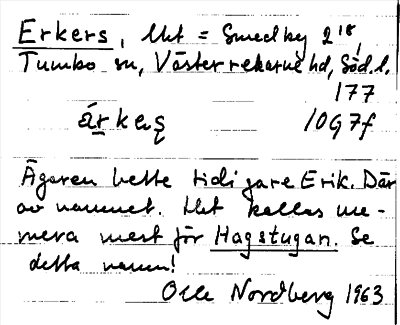 Erkers, lht = Smedbey 2¹⁸,
Tumbo sn, Västerrekarne hd, Söd. l.
177
ärkes 10G7f
Ägaren hette tidigare Erik. Där
av namnet. Lht kallas nu-
mera mest för Hagstugan. Se
detta namn!
Olle Nordberg 1963